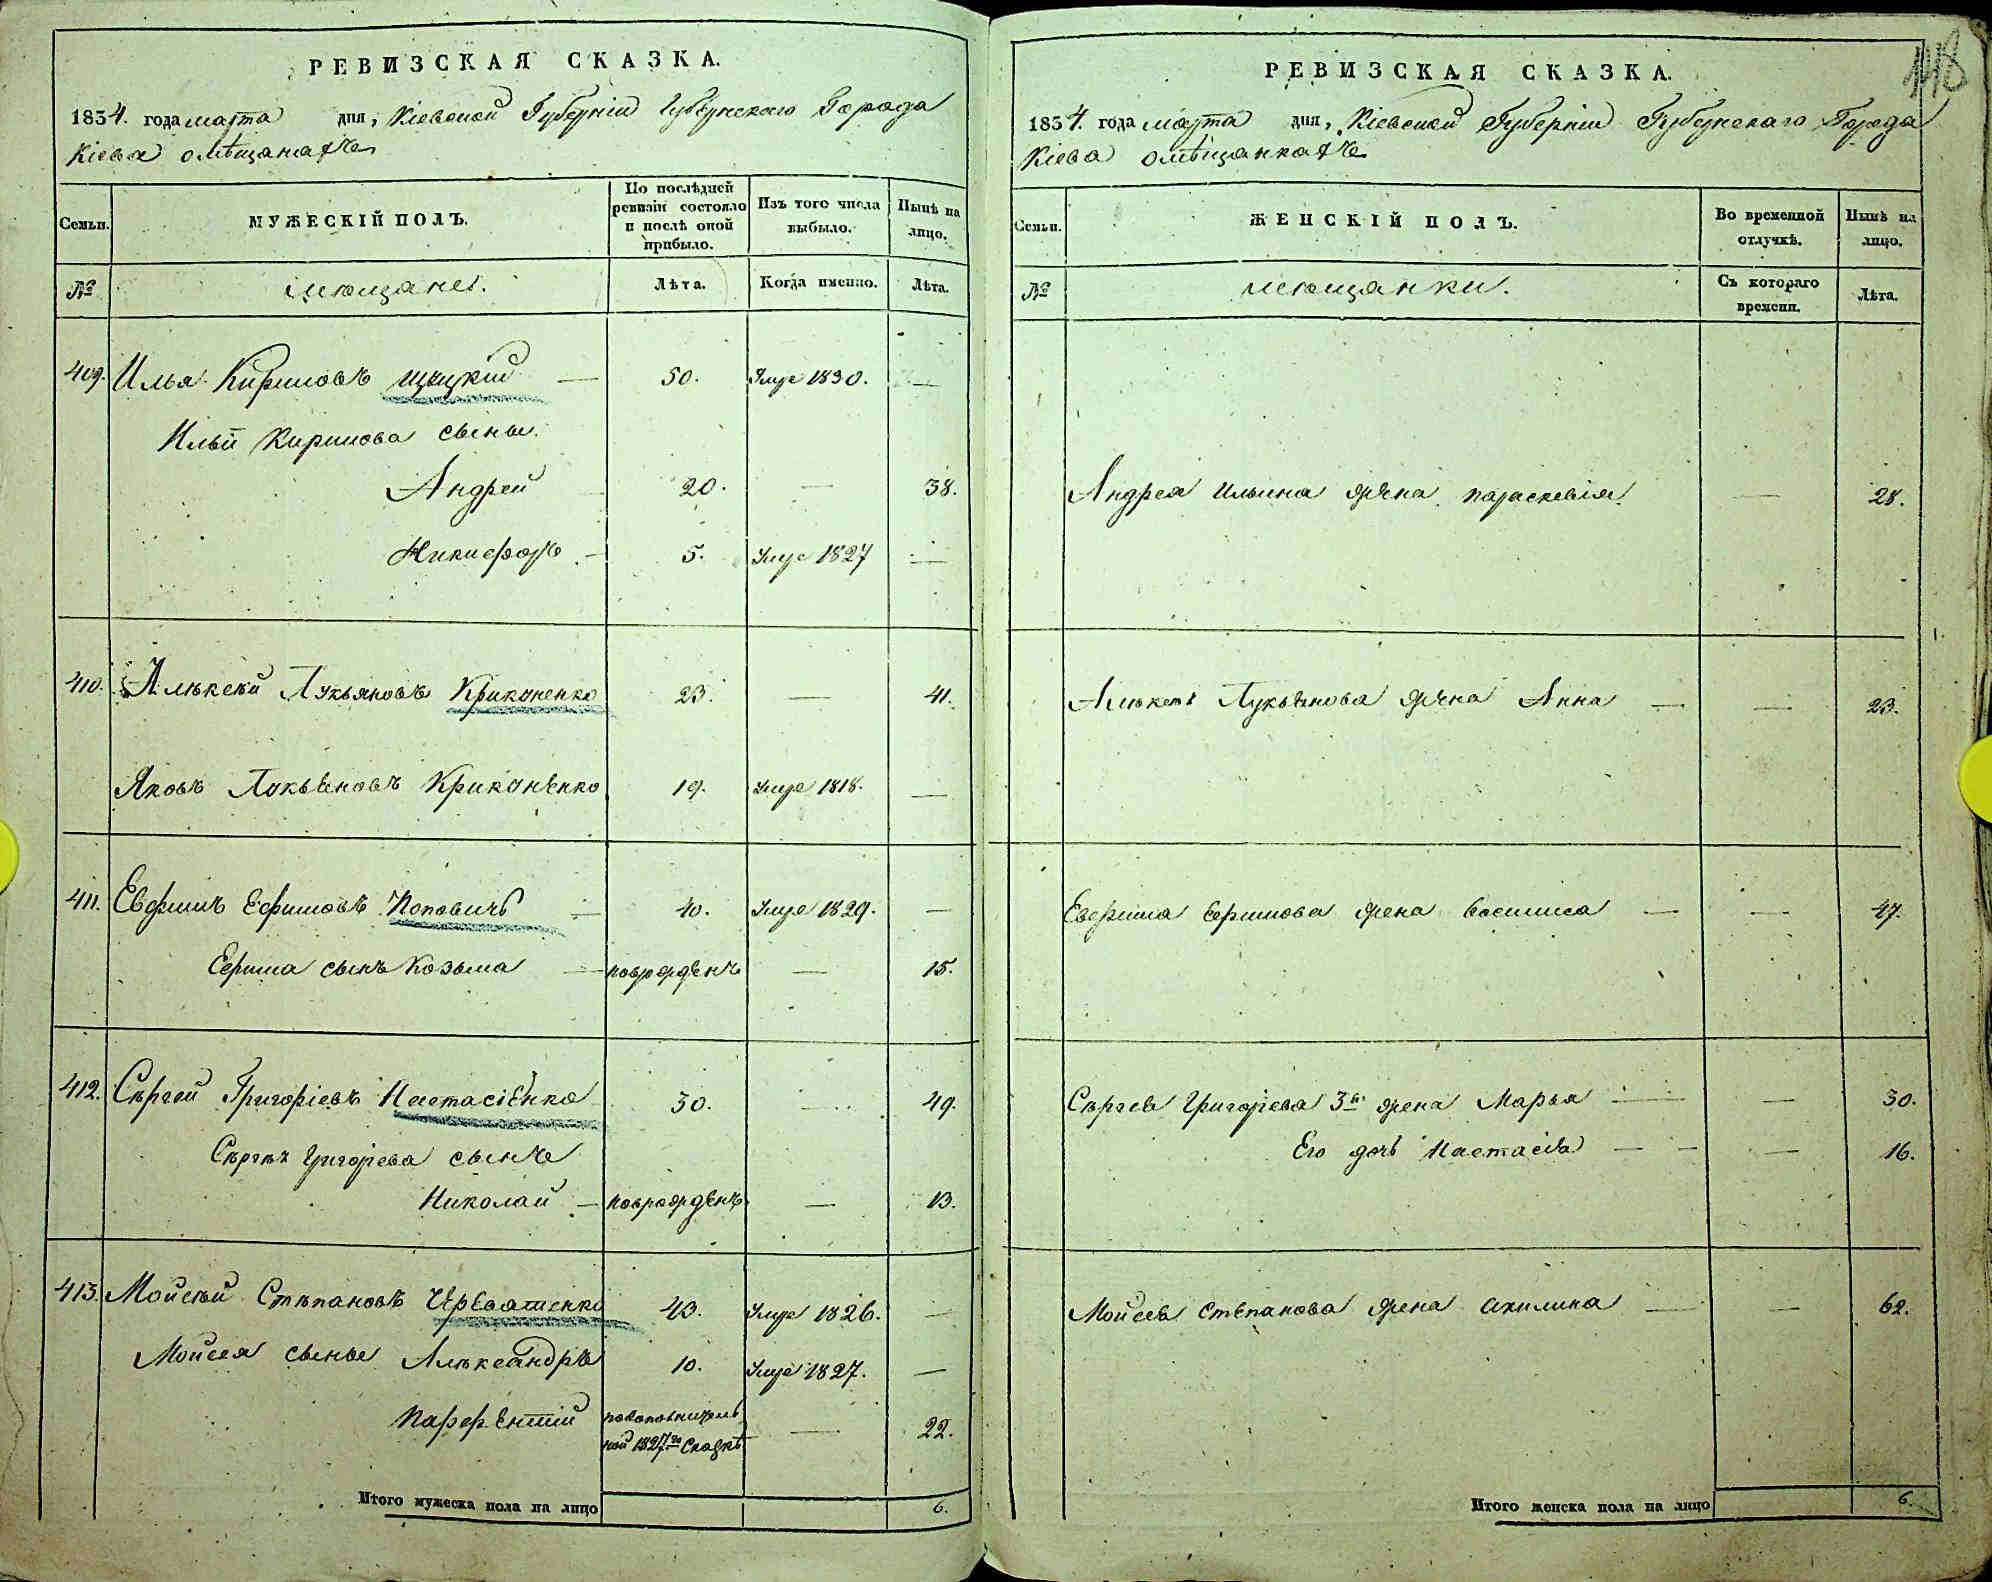 РЕВИЗСКАЯ СКАЗКА.
1834. года марта дня, Кіевской Губерніи Губернскаго Города
Кіева о мѣщанахъ
Семьи.
МУЖЕСКІЙ ПОЛЪ.
По послѣдней ревизіи состояло и послѣ оной прибыло.
Изъ того числа выбыло.
Нынѣ на лицо.
№
мещане.
Лѣта.
Когда именно.
Лѣта.
409. Илья Кириловъ — 50. Умре 1830. —
Ильи Кирилова сыны.
Андрей 20. — 38.
Никифоръ — 5. Умре 1827 —
410. Алексей Лукьяновъ Криконенко 23. — 41.
Яковъ Лукьеновъ Криконенко 19. умре 1818. —
411. Евфимъ Ефимовъ Поповичъ — 40. Умре 1829. —
Ефима сынъ Козьма — новрожденъ — 15.
412. Сергей Григоріевъ Настасіенко 30. — 49.
Сергея Григорева сынъ
Николай — новрожденъ — 13.
413. Мойсей Степановъ 43. Умре 1826. —
Мойсея сыны Александръ 10. Умре 1827. —
Парфентій
ной 1827го Сказкѣ — 22.
Итого мужеска пола на лицо 6.
148
РЕВИЗСКАЯ СКАЗКА.
1834. года марта дня, Кіевской Губерніи Губернскаго Города
Кіева о мѣщанкахъ
Семьи.
ЖЕНСКІЙ ПОЛЪ.
Во временной отлучкѣ.
Нынѣ на лицо.
№
мещанки.
Съ котораго времени.
Лѣта.
Андрея Ильина жена Параскевія — 28.
Алексея Лукьянова жена Анна — — 23.
Евфима Ефимова жена Василиса — — 47.
Сергея Григорева 3я жена Марья — — 30.
Его дочь Настасія — — — 16.
Мойсея Степанова жена Акилина — — 62.
Итого женска пола на лицо 6.